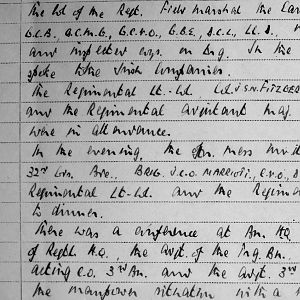 the Col of the Regt. Field Marshal the Earl
G.C.B., G.C.M.G., G.C.V.O., G.B.E., D.C.L., LL.D.,
and inspected coys. on Trg. In the
spoke to the Irish Companies.
The Regimental Lt-Col. Col. J.S.N. FITZGER
and the Regimental Adjutant Maj.
were in attendance.
In the evening, the Bn. mess
32nd Gds. Bde. BRIG. J.C.O. MARRIOTT, C.V.O., D
Regimental Lt-Col. and the Regimen
to dinner.
There was a conference at Bn. HQ
of Regtl. H.Q., the Adjt. of the Trg. Bn.
acting C.O. 3rd Bn. and the Adjt. 3rd
the manpower situation with a